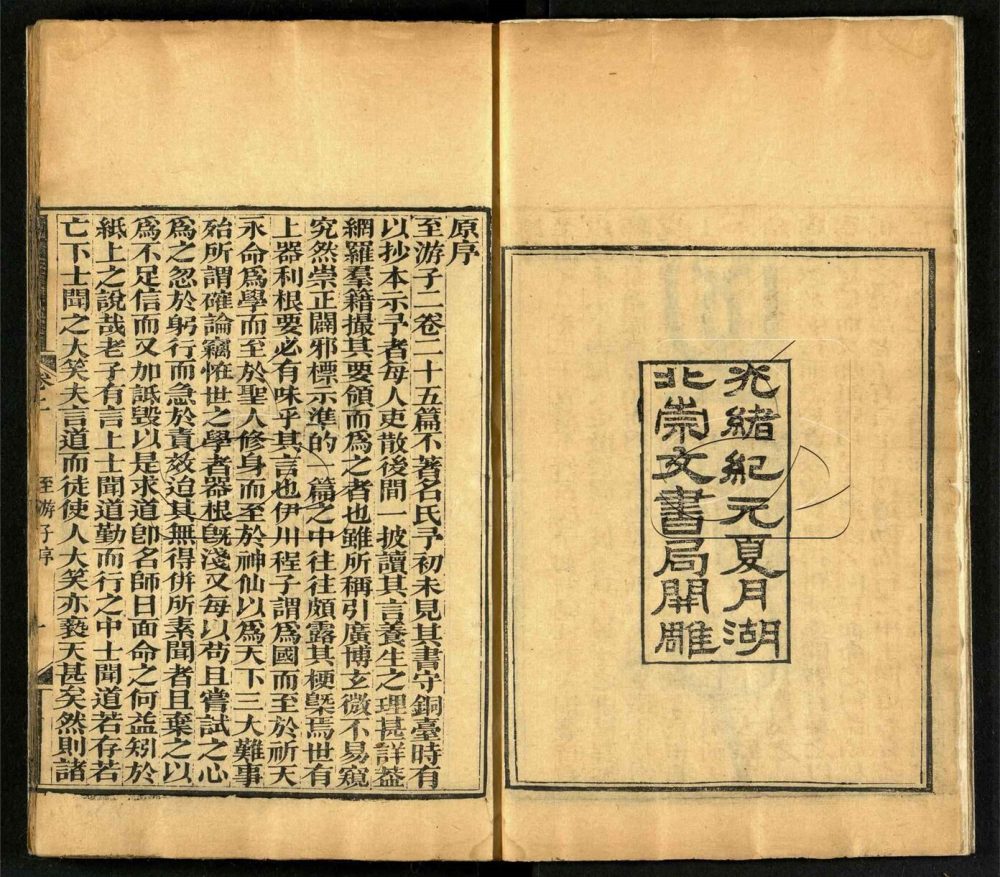 光緒紀元夏月湖
北崇文書局開雕
原序
至游子二卷二十五篇不著名氏予初未見其書守銅臺時有
以抄本示予者每人吏散後間一披讀其言養生之理甚詳葢
網羅羣籍撮其要領而爲之者也雖所稱引廣博玄微不易窺
究然崇正闢邪標示準的一篇之中往往頗露其梗槩焉世有
上器利根要必有味乎其言也伊川程子謂爲國而至於祈天
永命爲學而至於聖人修身而至於神仙以爲天下三大難事
殆所謂確論竊恠世之學者器根旣淺又每以苟且嘗試之心
爲之忽於躬行而急於責效迨其無得併所素聞者且棄之以
爲不足信而又加詆毀以是求道卽名師日面命之何益矧於
紙上之說哉老子有言上士聞道勤而行之中士聞道若存若
亡下士聞之大笑夫言道而徒使人大笑亦䙝天甚矣然則諸
至游子序
一